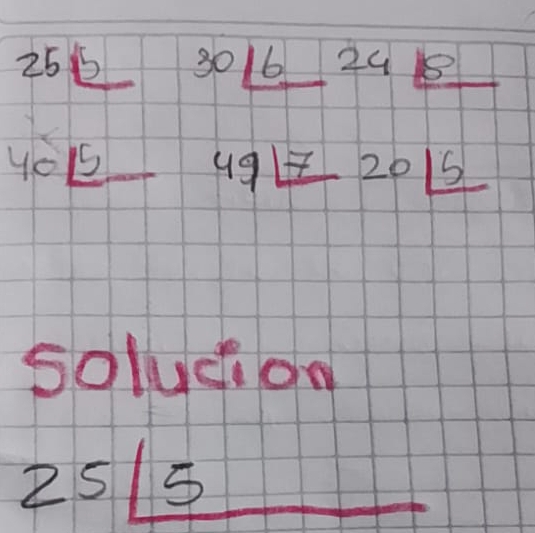 25 5 30 6 24 8
40 5 49 7 20 5
Solucion
25 5